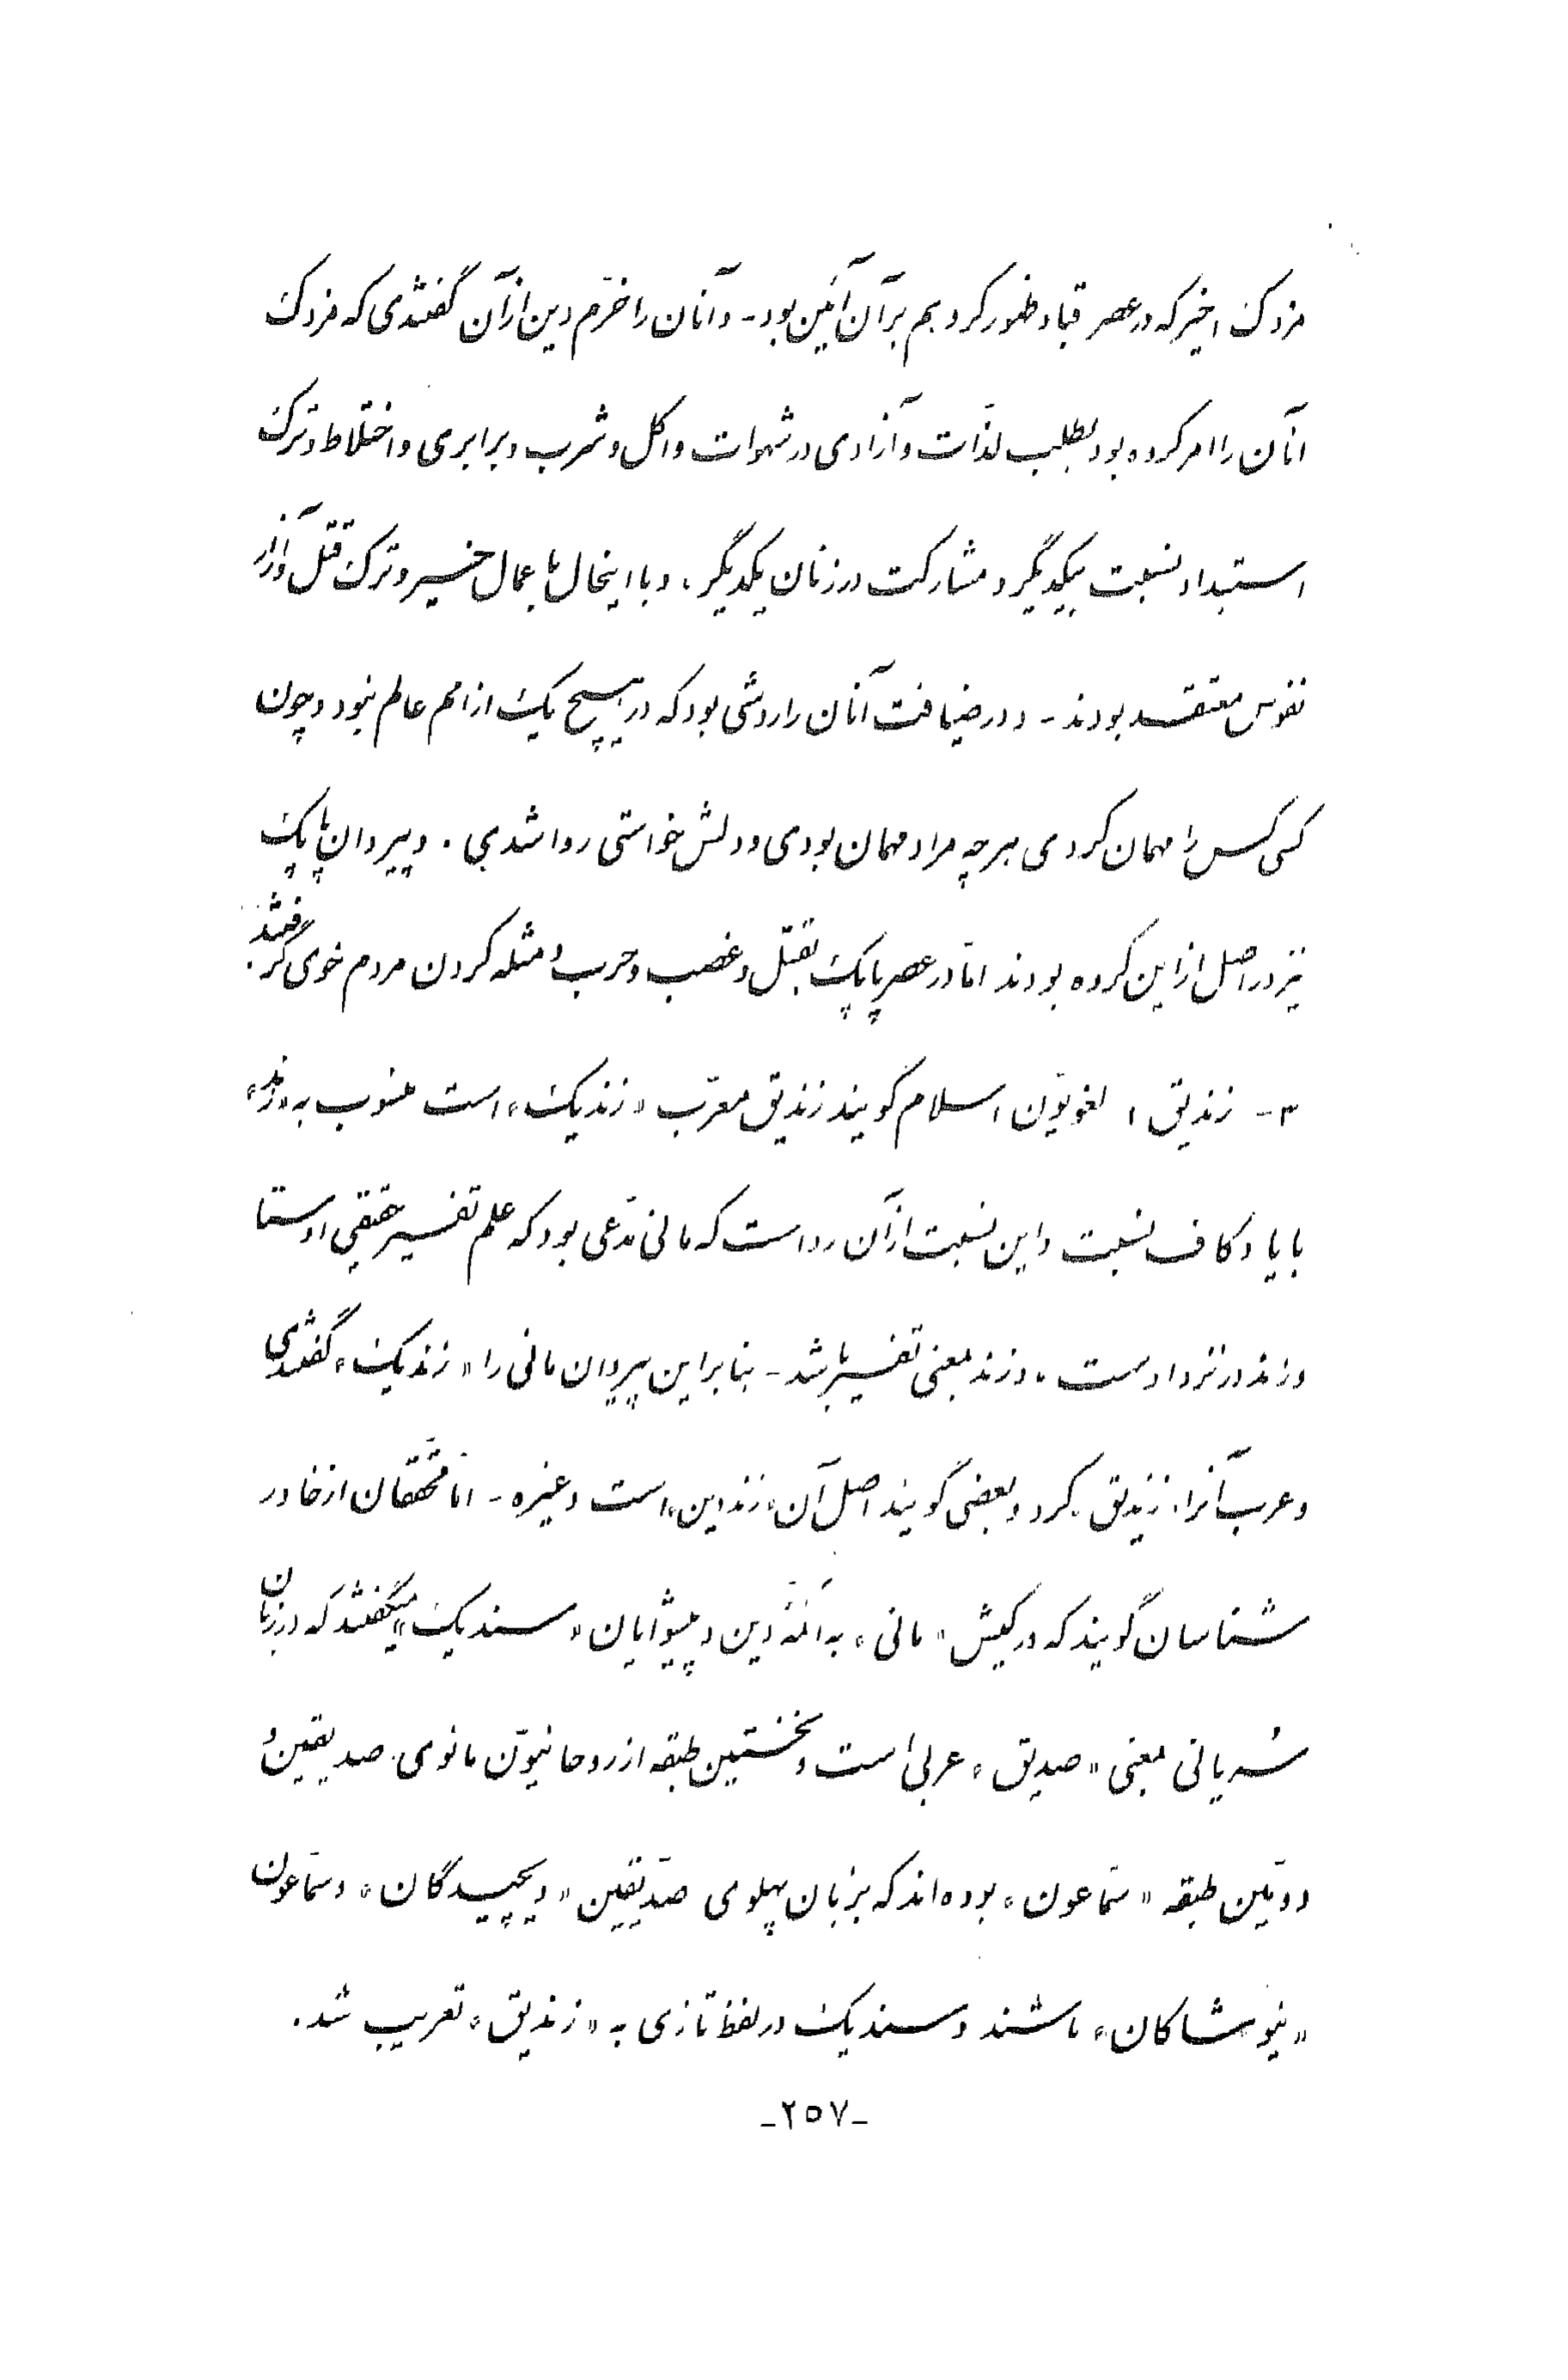 مزدک اخیر که در عصر قباد ظهور کرد هم برآن آئین بود - و آنان را خرّم دین ازآن گفتندی که مزدک
آنان را امر کرده بود بطلب لذّات و آزادی در شهوات و اکل و شرب و برابری و اختلاط و ترک
استبداد نسبت بیکدیگر و مشارکت در زنان یکدیگر، و با اینحال باعمال خیر و ترک قتل و آزار
نفوس معتقد بودند - و در ضیافت آنان را روشی بود که در هیچ یک از امم عالم نبود و چون
کسی کس را مهمان کردی هرچه مراد مهمان بودی و دلش خواستی روا شدی. و پیروان پاپک
نیز در اصل از این گروه بودند امّا در عصر پاپک بقتل و غصب و حرب و مثله کردن مردم خوی گرفتند.
۳- زندیق: لغویّون اسلام گویند زندیق معرّب «زندیک» است منسوب به «زند»
با یا و کاف نسبت و این نسبت ازآن رو است که مانی مدّعی بود که علم تفسیر حقیقی اوستا
و زند در نزد اوست، و زند بمعنی تفسیر باشد - بنابراین پیروان مانی را «زندیک» گفتندی
و عرب آنرا «زندیق» کرد و بعضی گویند اصل آن «زن دین» است و غیره - امّا محقّقان از خاور
شناسان گویند که در کیش «مانی» به ائمّهٔ دین و پیشوایان «سندیک» میگفتند که در زبان
سُریانی بمعنی «صدیق» عربی است و نخستین طبقه از روحانیّون مانوی صدیقین و
دوّمین طبقه «سمّاعون» بوده‌اند که بزبان پهلوی صدّیقین «ویچیدگان» و سمّاعون
«نیوشاکان» باشند و سندیک در لفظ تازی به «زندیق» تعریب شد.
-۲۵۷-